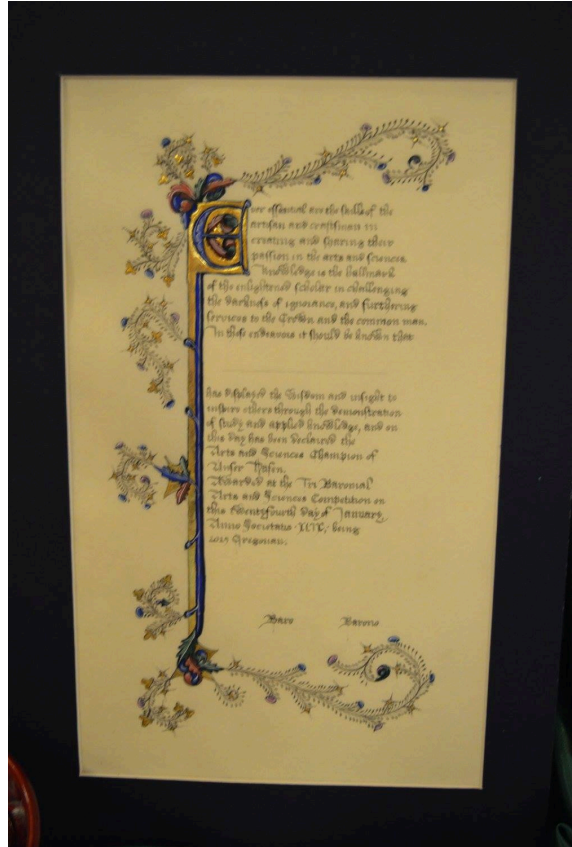 Ever essential are the skills of the
artisan and craftsman in
creating and sharing their
passion in the arts and sciences.
Knowledge is the hallmark
of the enlightened scholar in challenging
the darkness of ignorance, and furthering
services to the Crown and the common man.
In these endeavors it should be known that
has displayed the wisdom and insight to
inspire others through the demonstration
of study and applied knowledge, and on
this day has been declared the
Arts and Sciences Champion of
Unser Hafen.
Awarded at the Tri Baronial
Arts and Sciences Competition on
this twentyfourth day of January,
Anno Societatis being
Gregorian.
Baro Barono